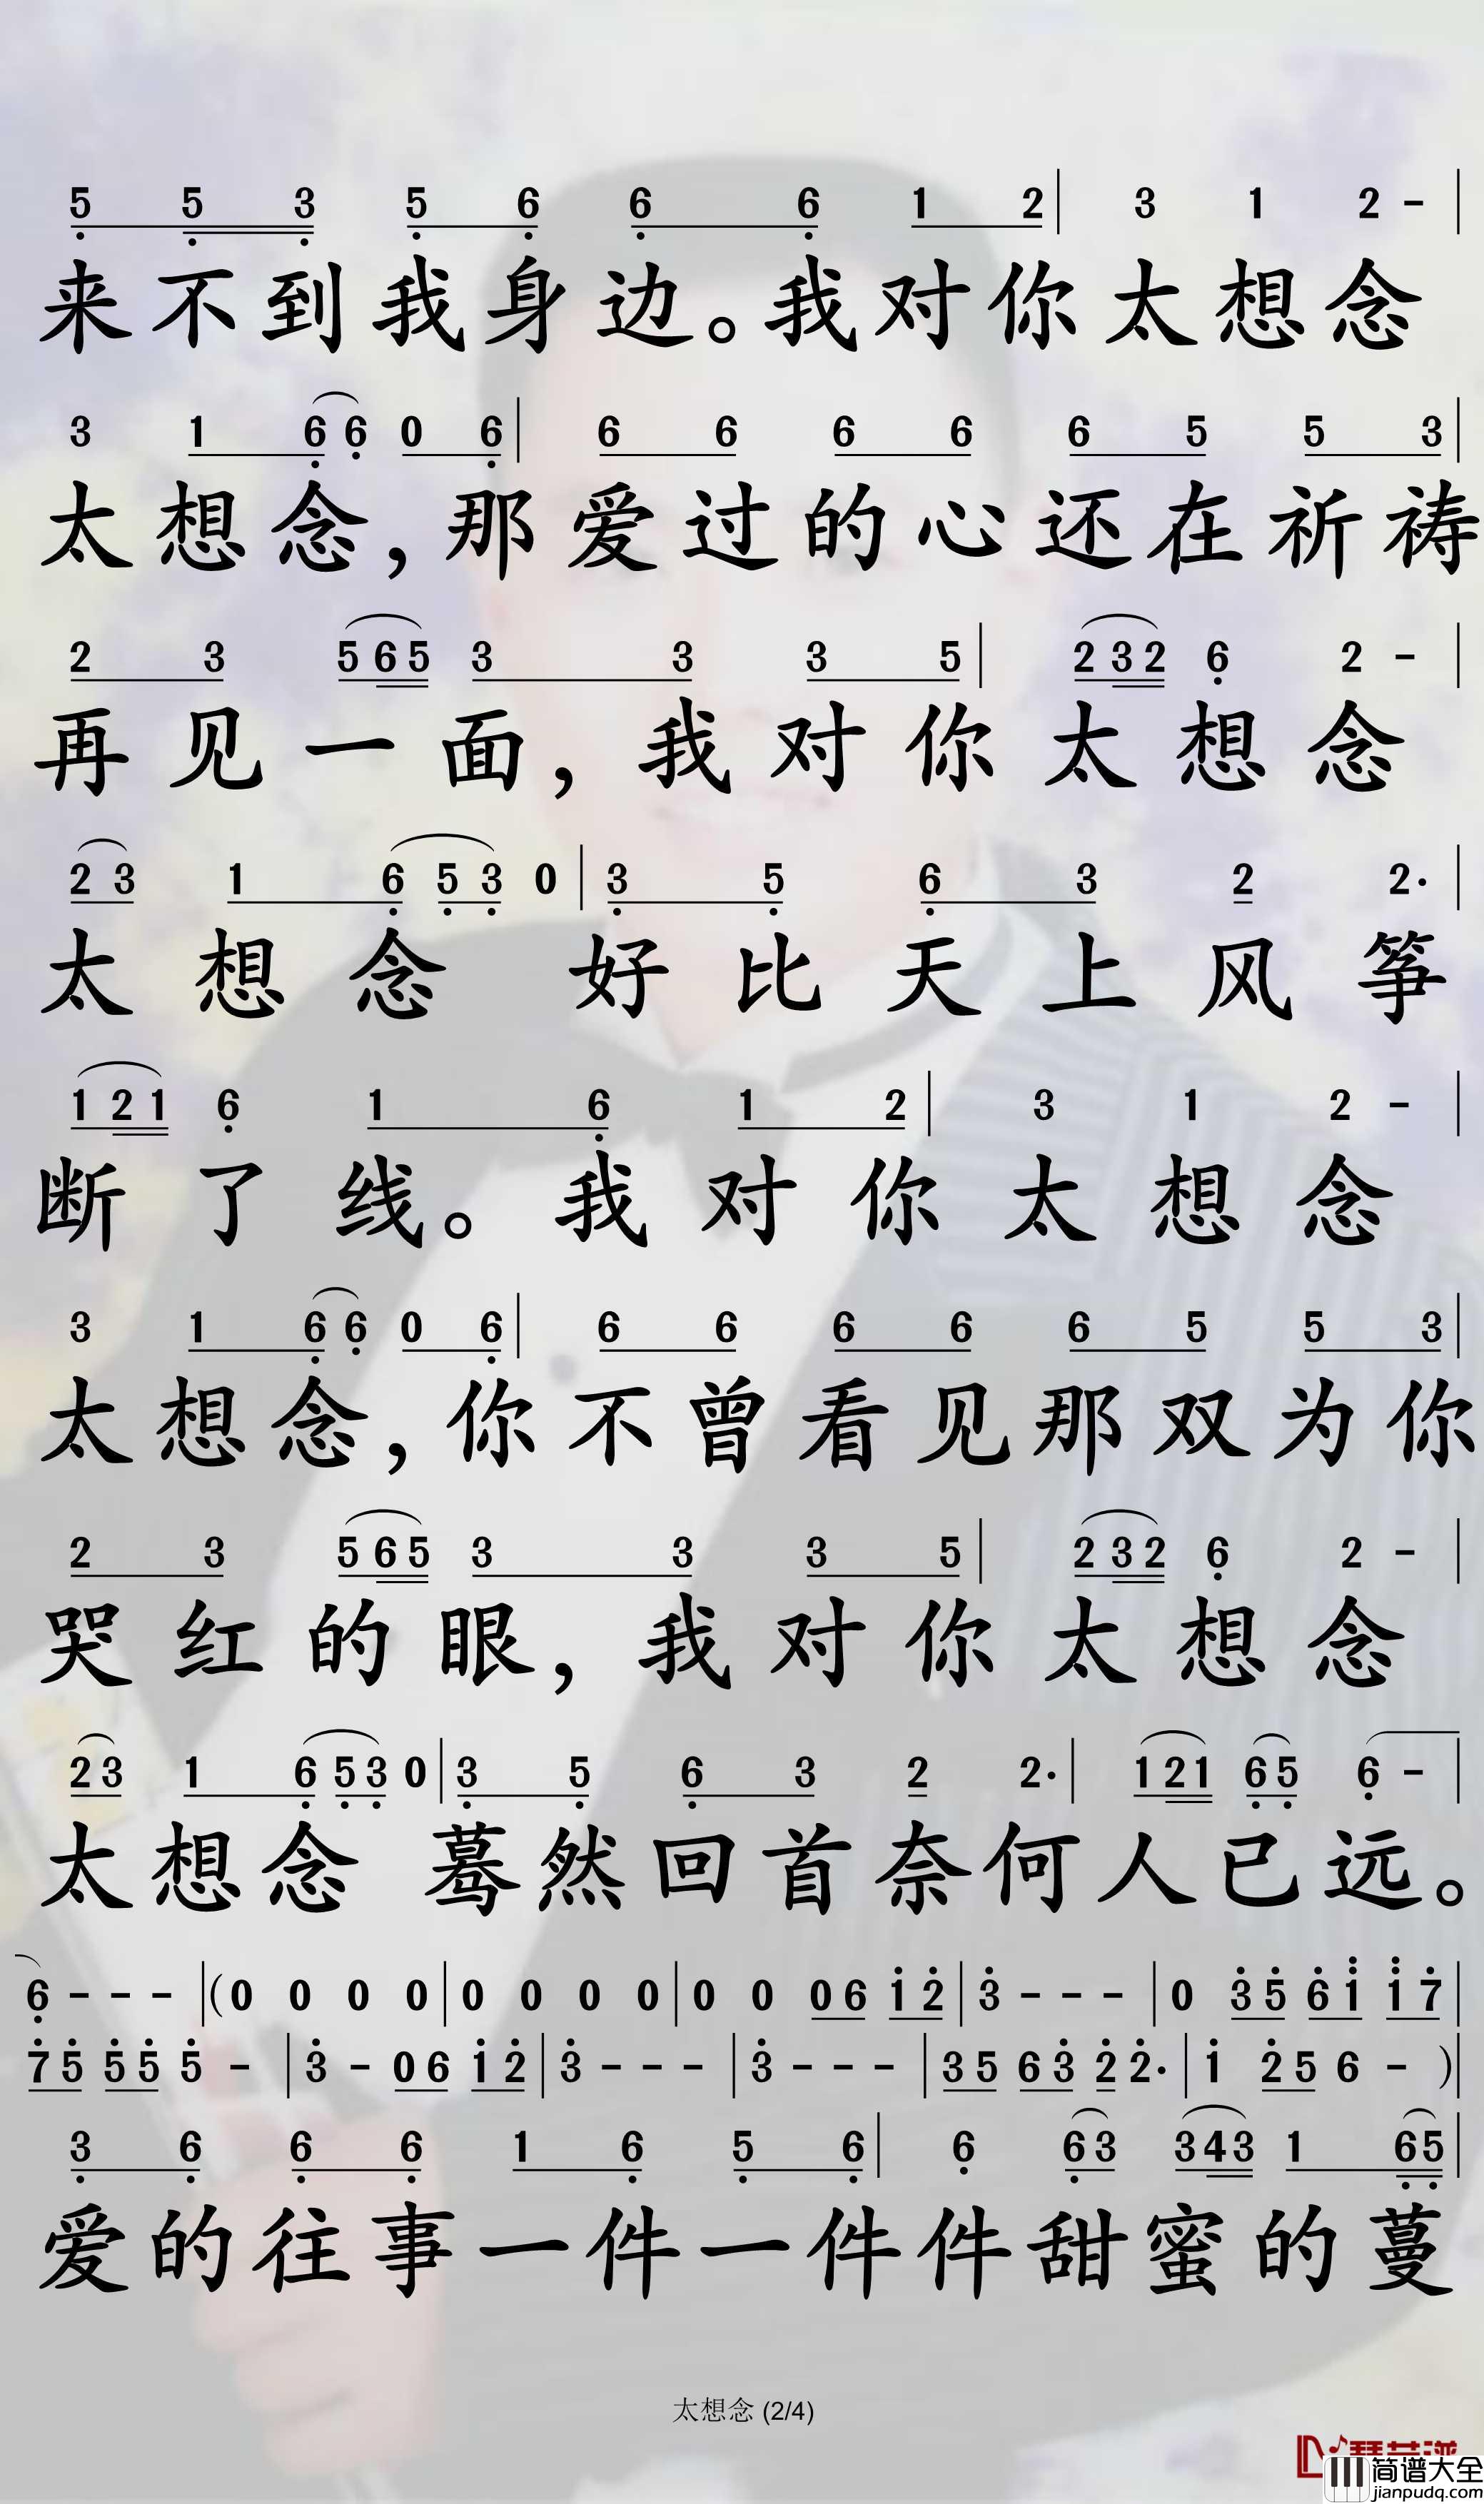 5 5 3 5 6 6 6 1 2 | 3 1 2 - |
来不到我身边。我对你太想念
3 1 6 6 0 6 | 6 6 6 6 6 5 5 3 |
太想念，那爱过的心还在祈祷
2 3 5 6 5 3 3 3 5 | 2 3 2 6 2 - |
再见一面，我对你太想念
2 3 1 6 5 3 0 | 3 5 6 3 2 2· |
太想念 好比天上风筝
1 2 1 6 1 6 1 2 | 3 1 2 - |
断了线。我对你太想念
3 1 6 6 0 6 | 6 6 6 6 6 5 5 3 |
太想念，你不曾看见那双为你
2 3 5 6 5 3 3 3 5 | 2 3 2 6 2 - |
哭红的眼，我对你太想念
2 3 1 6 5 3 0 | 3 5 6 3 2 2· | 1 2 1 6 5 6 - |
太想念 蓦然回首奈何人已远。
6 - - - | (0 0 0 0 | 0 0 0 0 | 0 0 0 6 1 2 | 3 - - - | 0 3 5 6 1 1 7 |
7 5 5 5 5 - | 3 - 0 6 1 2 | 3 - - - | 3 - - - | 3 5 6 3 2 2· | 1 2 5 6 - ) |
3 6 6 6 1 6 5 6 | 6 6 3 3 4 3 1 6 5 |
爱的往事一件一件件甜蜜的蔓
太想念 (2/4)
简谱大全
jianpudq.com